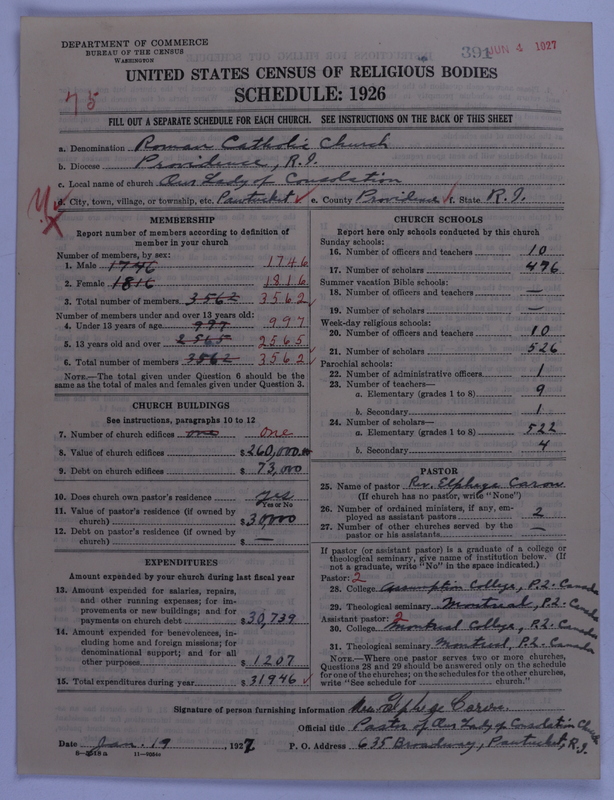 DEPARTMENT OF COMMERCE
BUREAU OF THE CENSUS
WASHINGTON
391 JUN 4 1927
UNITED STATES CENSUS OF RELIGIOUS BODIES
75
SCHEDULE: 1926
FILL OUT A SEPARATE SCHEDULE FOR EACH CHURCH. SEE INSTRUCTIONS ON THE BACK OF THIS SHEET
a. Denomination Roman Catholic Church
b. Diocese Providence, R.I.
c. Local name of church Our Lady of Consolation
d. City, town, village, or township, etc. Pawtucket e. County Providence f. State R.I.
MEMBERSHIP
Report number of members according to definition of
member in your church
Number of members, by sex:
1. Male 1746 1746
2. Female 1816 1816
3. Total number of members 3562 3562
Number of members under and over 13 years old:
4. Under 13 years of age 997 997
5. 13 years old and over 2565 2565
6. Total number of members 3562 3562
NOTE.—The total given under Question 6 should be the
same as the total of males and females given under Question 3.
CHURCH BUILDINGS
See instructions, paragraphs 10 to 12
7. Number of church edifices one one
8. Value of church edifices $260,000.00
9. Debt on church edifices $ 73,000
10. Does church own pastor's residence yes
Yes or No
11. Value of pastor's residence (if owned by
church) $30000
12. Debt on pastor's residence (if owned by
church) $ —
EXPENDITURES
Amount expended by your church during last fiscal year
13. Amount expended for salaries, repairs,
and other running expenses; for im-
provements or new buildings; and for
payments on church debt $30,739
14. Amount expended for benevolences, in-
cluding home and foreign missions; for
denominational support; and for all
other purposes $1207
15. Total expenditures during year $31946
CHURCH SCHOOLS
Report here only schools conducted by this church
Sunday schools:
16. Number of officers and teachers 10
17. Number of scholars 496
Summer vacation Bible schools:
18. Number of officers and teachers —
19. Number of scholars —
Week-day religious schools:
20. Number of officers and teachers 10
21. Number of scholars 526
Parochial schools:
22. Number of administrative officers 1
23. Number of teachers—
a. Elementary (grades 1 to 8) 9
b. Secondary 1
24. Number of scholars—
a. Elementary (grades 1 to 8) 522
b. Secondary 4
PASTOR
25. Name of pastor Rev. Elphege Caron
(If church has no pastor, write "None")
26. Number of ordained ministers, if any, em-
ployed as assistant pastors 2
27. Number of other churches served by the
pastor or his assistants —
If pastor (or assistant pastor) is a graduate of a college or
theological seminary, give name of institution below. (If
not a graduate, write "No" in the space indicated.)
Pastor: 2
28. College Assumption College, P.Q. Canada
29. Theological seminary Montreal, P.Q. Canada
Assistant pastor: 2
30. College Montreal College, P.Q. Canada
31. Theological seminary Montreal, P.Q. Canada
NOTE.—Where one pastor serves two or more churches,
Questions 28 and 29 should be answered only on the schedule
for one of the churches; on the schedules for the other churches,
write "See schedule for church."
Signature of person furnishing information Rev. Elphege Caron
Official title Pastor of Our Lady of Consolation Church
Date Jan. 19, 1927 P. O. Address 635 Broadway, Pawtucket, R.I.